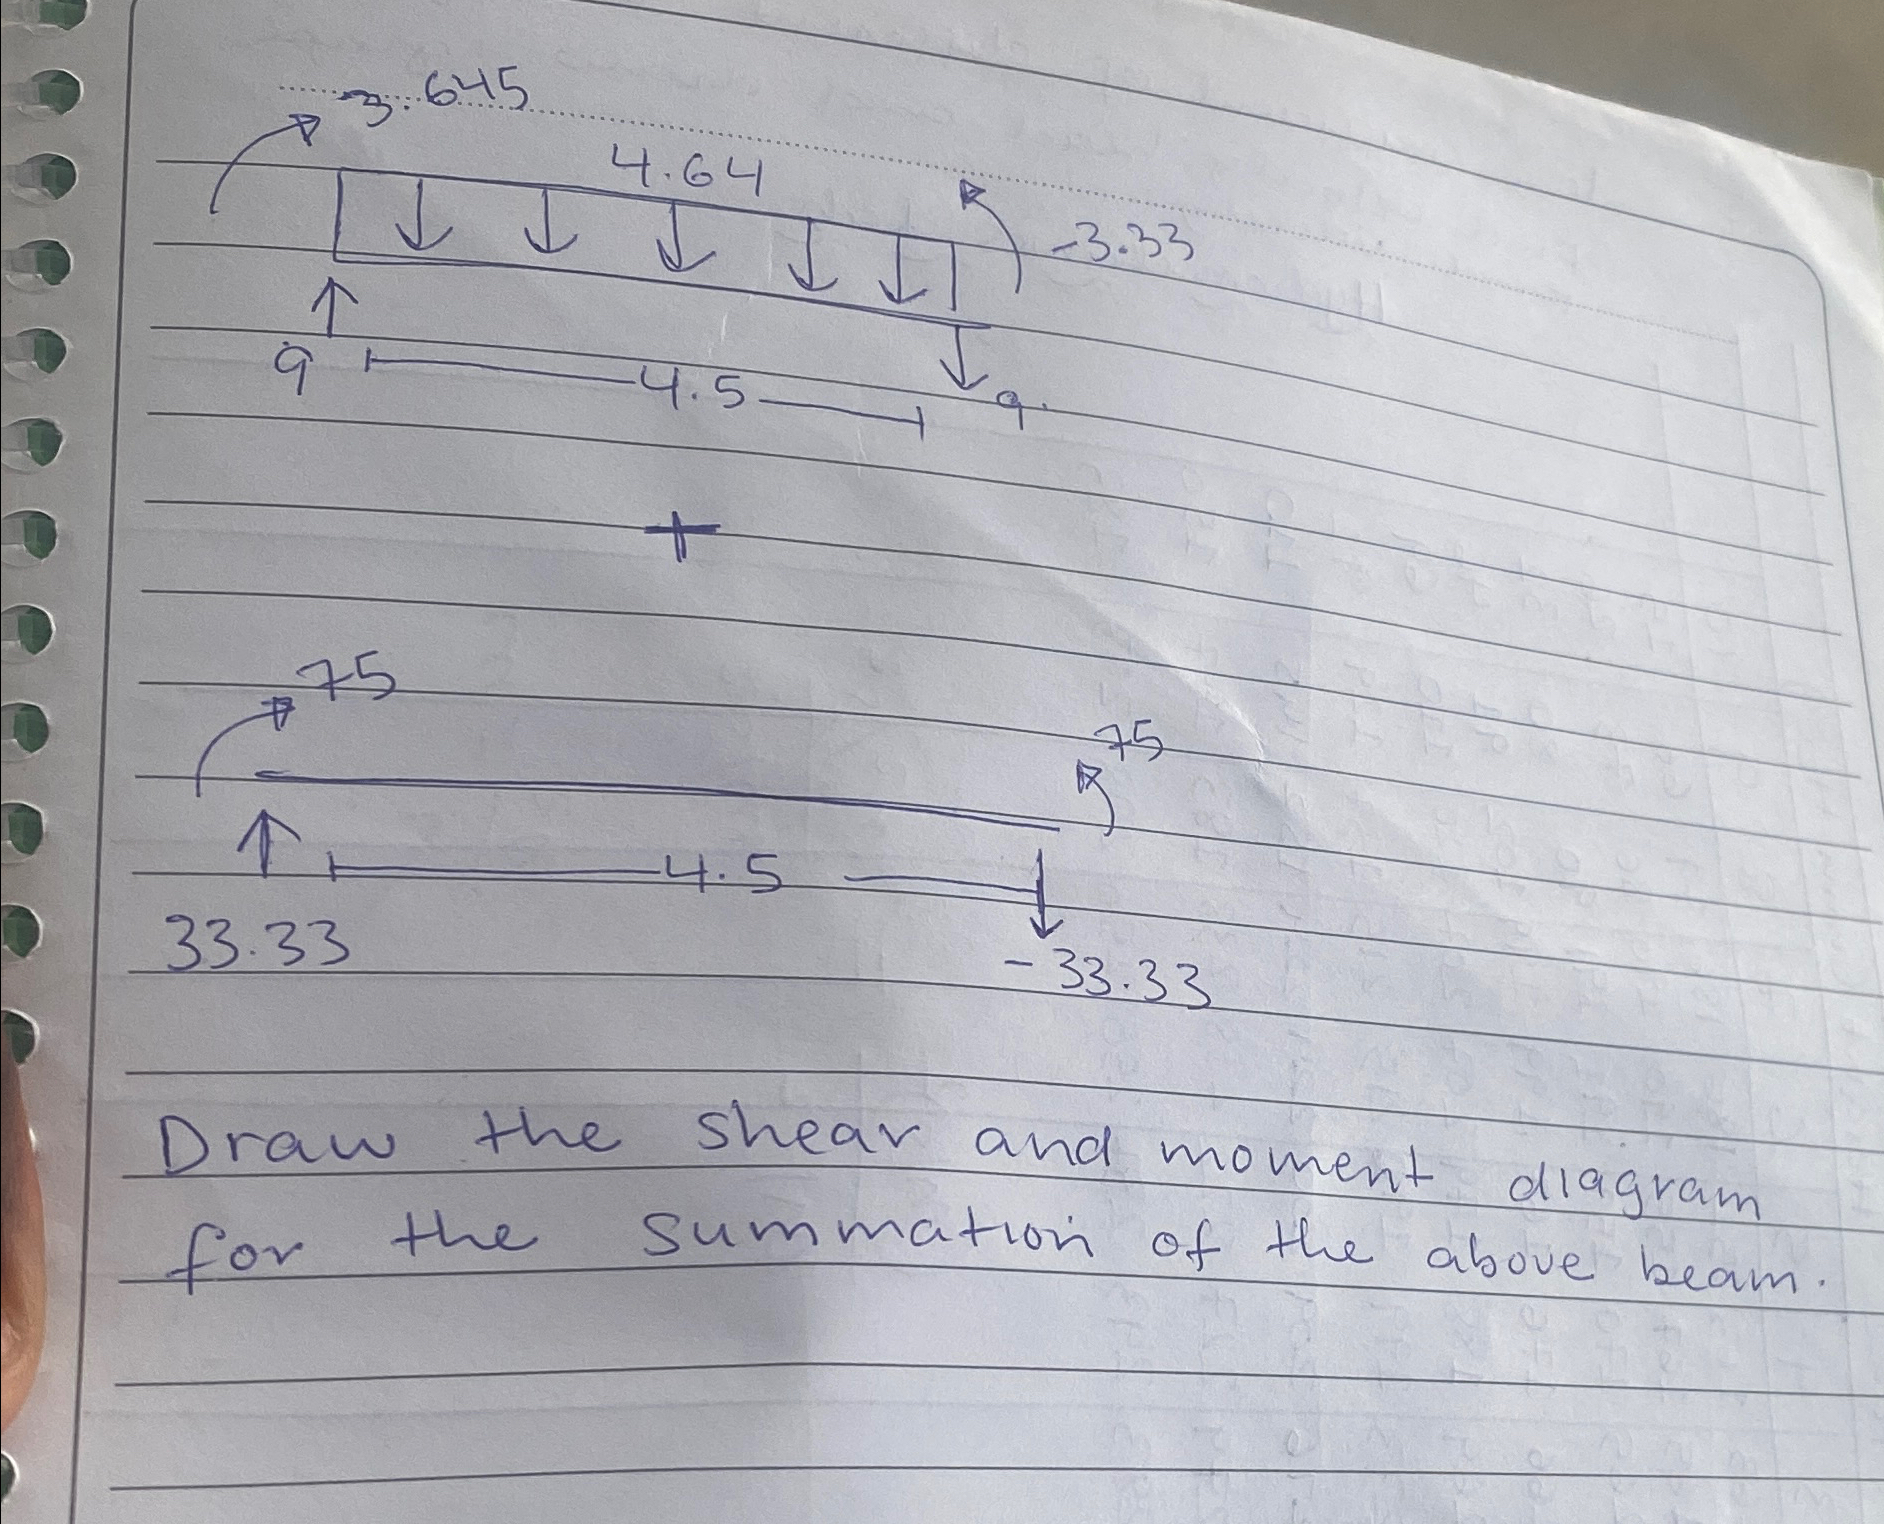 -3.645
4.64
-3.33
9
4.5
9.
+
75
75
4.5
33.33
-33.33
Draw the shear and moment diagram
for the summation of the above beam.